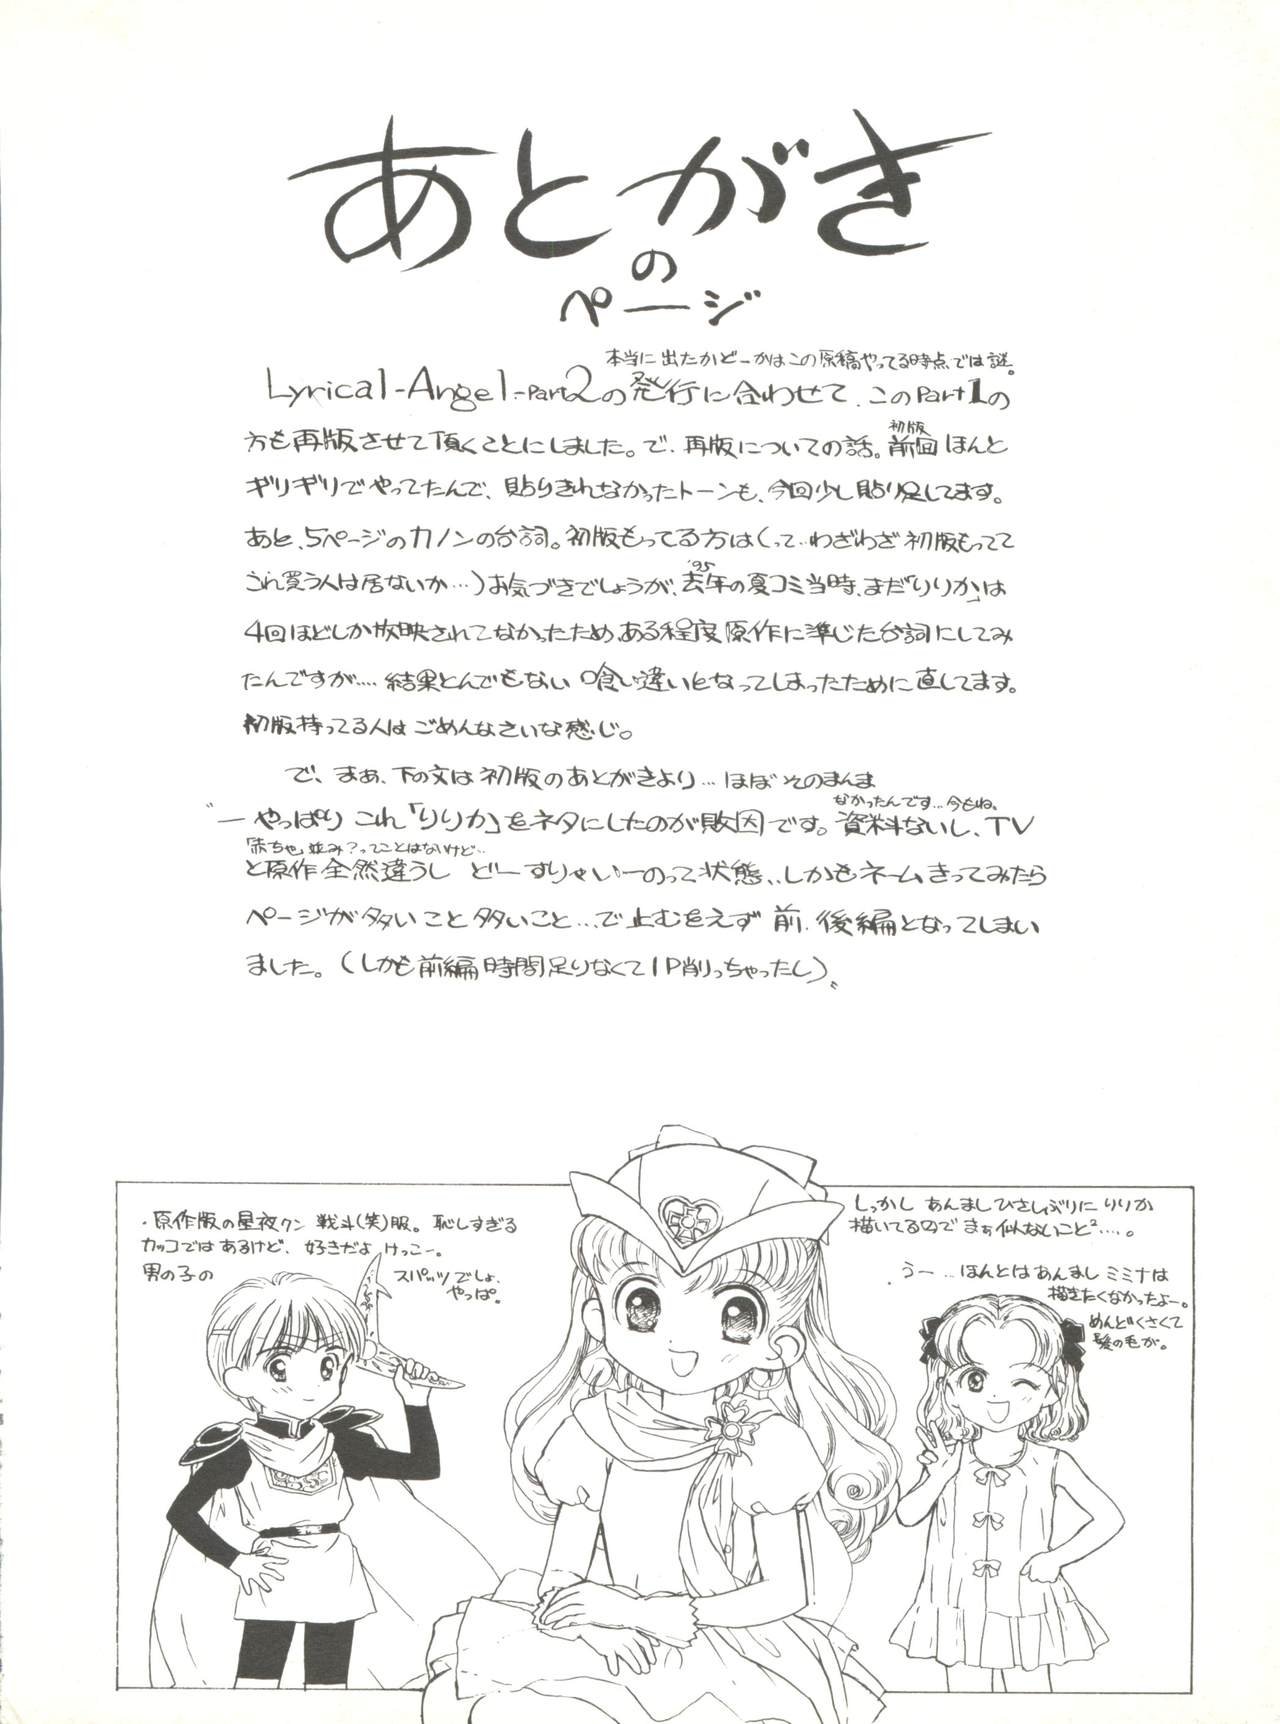 あとがき
の
ページ
本当に出たかどーかはこの原稿やってる時点では謎。
Lyrical-Angel-Part2の発行に合わせて、このPart1の
方も再版させて頂くことにしました。で、再版についての話。前回ほんと
初版
ギリギリでやってたんで、貼りきれなかったトーンも、今回少し貼り足してます。
あと、5ページのカノンの台詞。初版もってる方は(って…わざわざ初版もってて
これ買う人は居ないか…)お気づきでしょうが、去年の夏コミ当時、まだ「りりか」は
'95
4回ほどしか放映されてなかったため、ある程度原作に準じた台詞にしてみ
たんですが‥‥結果とんでもない喰い違いとなってしまったために直してます。
初版持ってる人はごめんなさいな感じ。
で、まぁ、下の文は初版のあとがきより…ほぼそのまんま
なかったんです…今もね、
〝ーやっぱりこれ「りりか」をネタにしたのが敗因です。資料ないし、TV
「赤ちゃ」並み?ってことはないけど…
と原作全然違うし どーすりゃいーのって状態、、しかもネームきってみたら
ページが多いこと多いこと…で止むをえず前、後編となってしまい
ました。(しかも前編時間足りなくて1P削っちゃったし)〟
・原作版の星夜クン戦斗(笑)服。恥しすぎる
カッコではあるけど、好きだよけっこー。
男の子の
スパッツでしょ、
やっぱ。
しっかしあんましひさしぶりにりりか
描いてるので まぁ似ないこと²‥‥。
うー…ほんとはあんましミミナは
描きたくなかったよー。
めんどくさくて
髪の毛が。